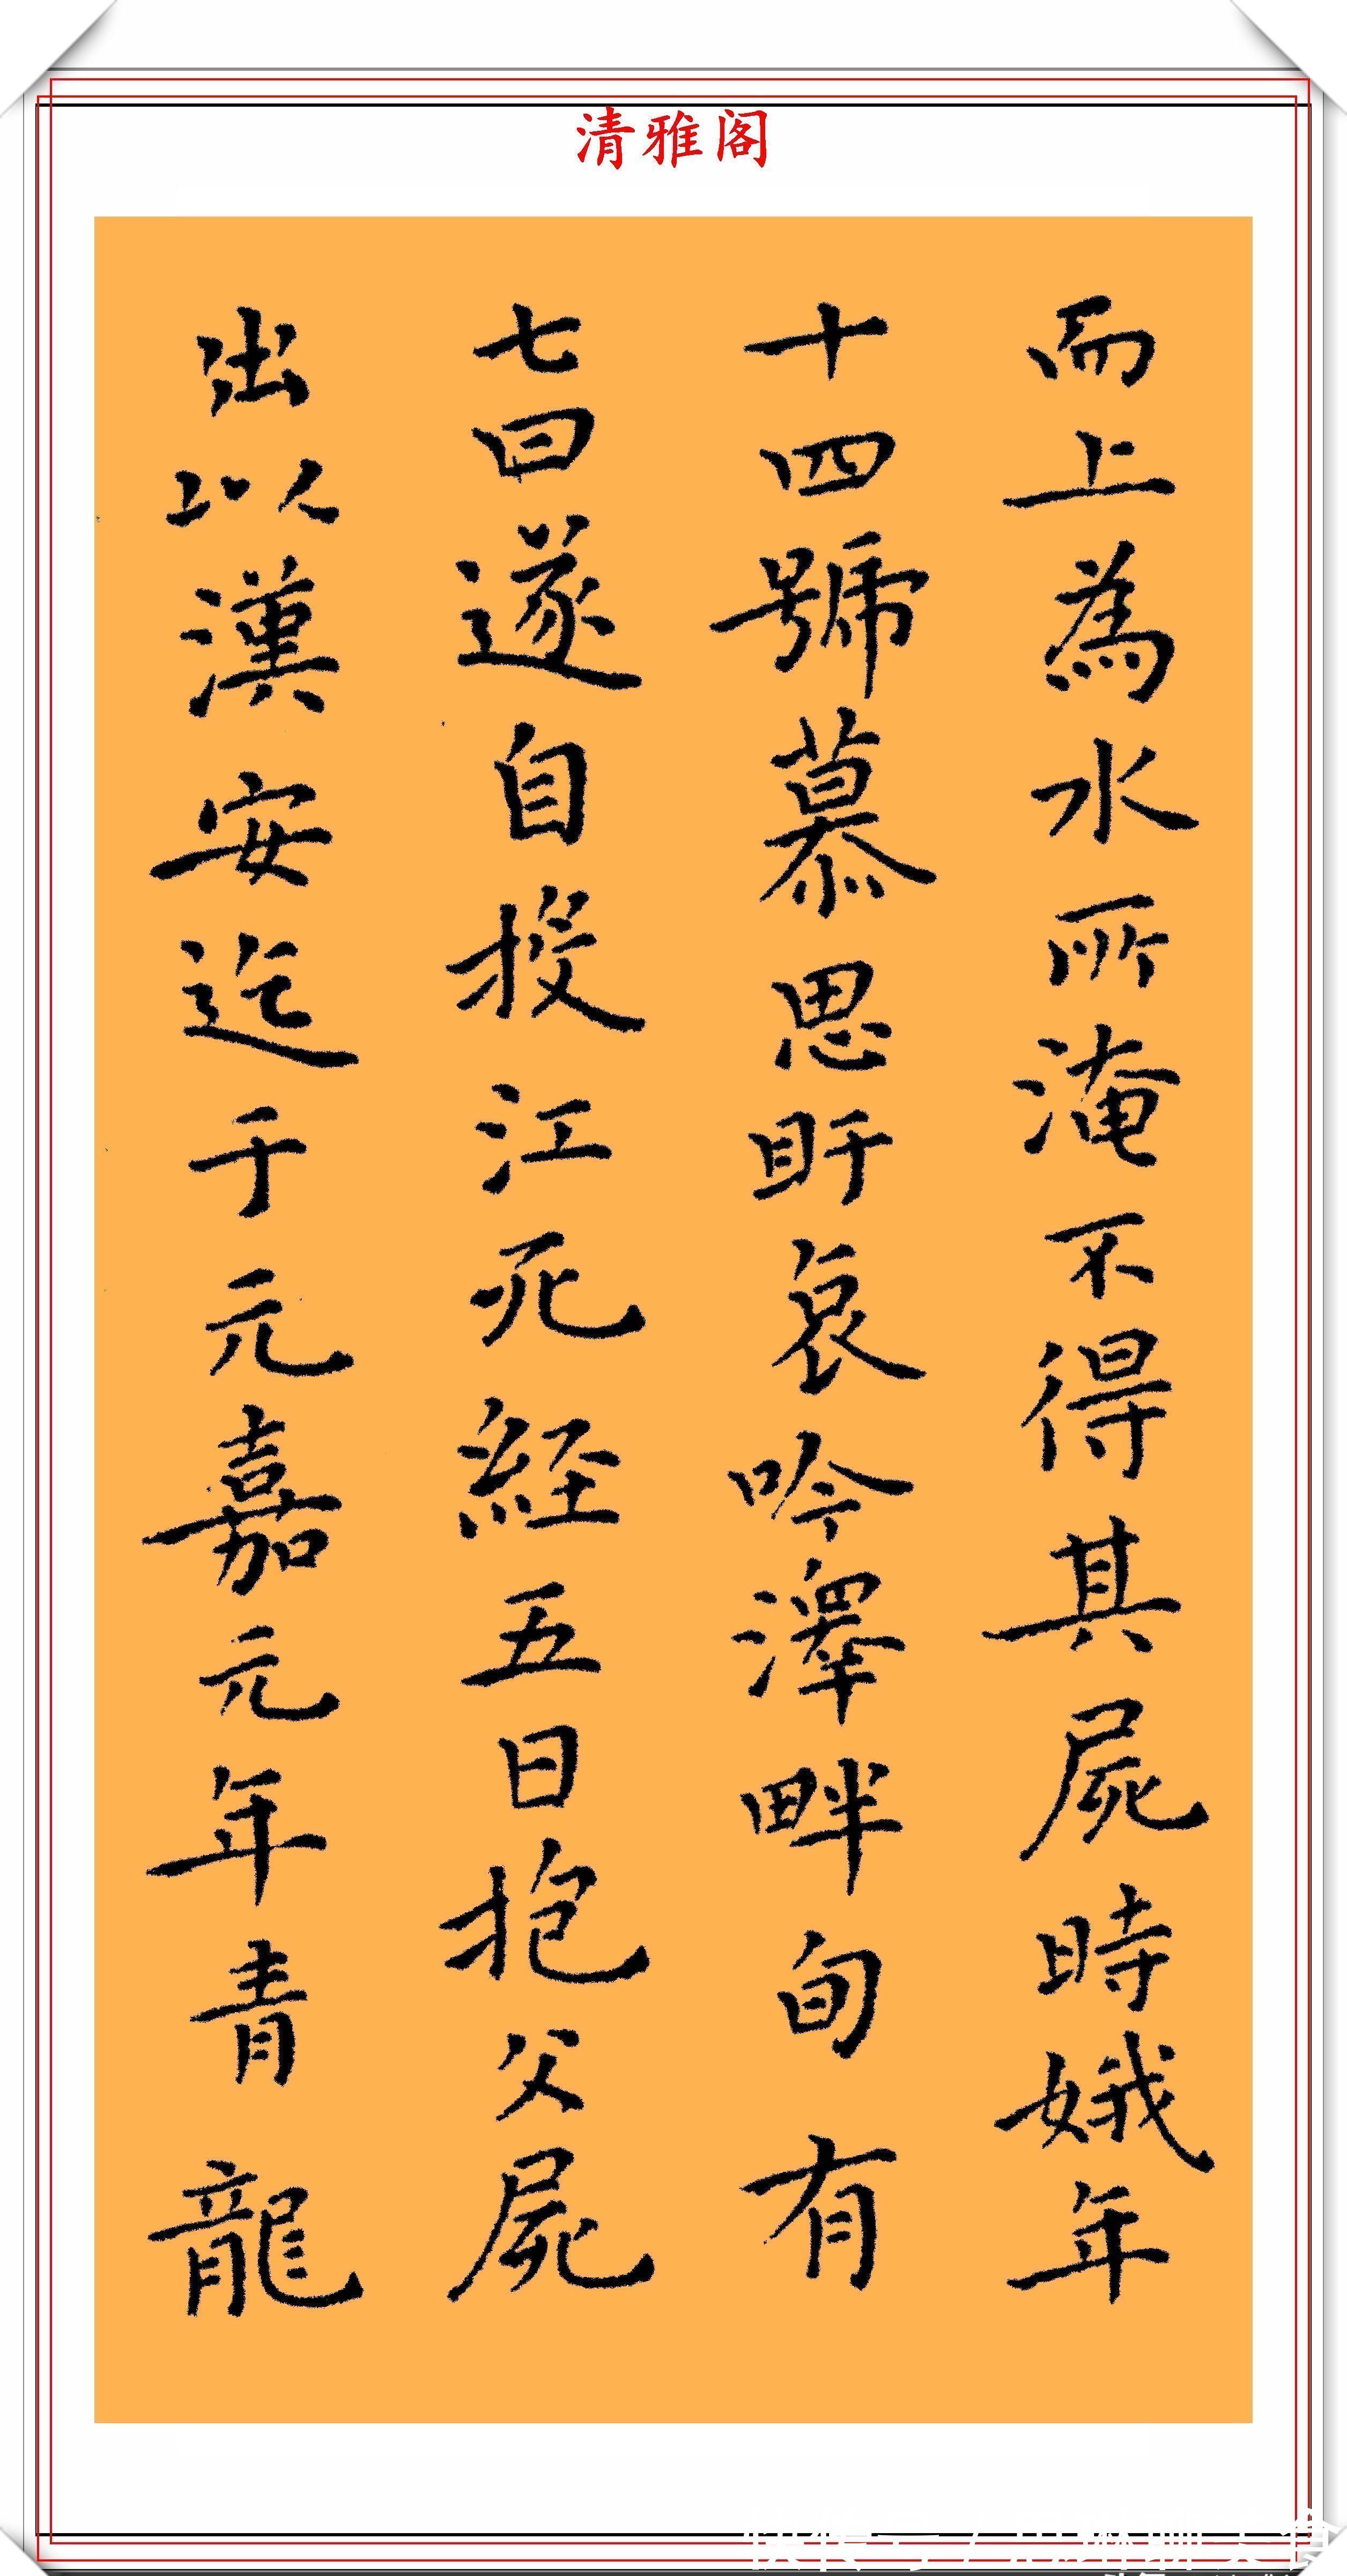 清雅阁
而上為水所淹不得其屍時娥年
十四號慕思盱哀吟澤畔旬有
七日遂自投江死經五日抱父屍
出以漢安迄于元嘉元年青龍